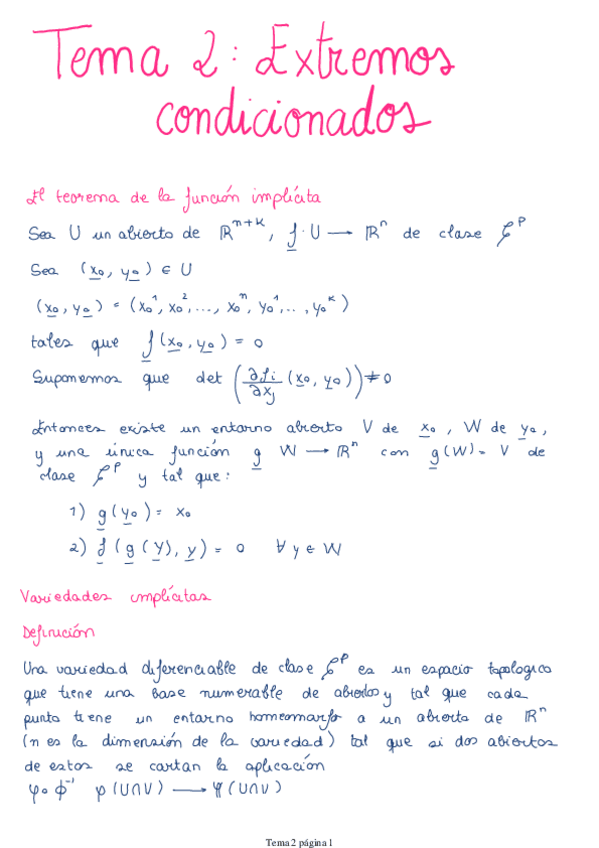 Tema 2: Extremos
condicionados
El teorema de la función implícita
Sea U un abierto de ℝⁿ⁺ᵏ, f: U → ℝⁿ de clase 𝒞ᵖ
Sea (x₀, y₀) ∈ U
(x₀, y₀) = (x₀¹, x₀², ..., x₀ⁿ, y₀¹, .., y₀ᵏ)
tales que f(x₀, y₀) = 0
Suponemos que det (∂fᵢ/∂xⱼ (x₀, y₀)) ≠ 0
Entonces existe un entorno abierto V de x₀, W de y₀,
y una única función g W → ℝⁿ con g(W) = V de
clase 𝒞ᵖ y tal que:
1) g(y₀) = x₀
2) f(g(y), y) = 0 ∀ y ∈ W
Variedades implícitas
Definición
Una variedad diferenciable de clase 𝒞ᵖ es un espacio topologico
que tiene una base numerable de abiertos y tal que cada
punto tiene un entorno homeomorfo a un abierto de ℝⁿ
(n es la dimensión de la variedad) tal que si dos abiertos
de estos se cortan la aplicación
φ∘ϕ⁻¹ φ(U∩V) → φ(U∩V)
Tema 2 página 1